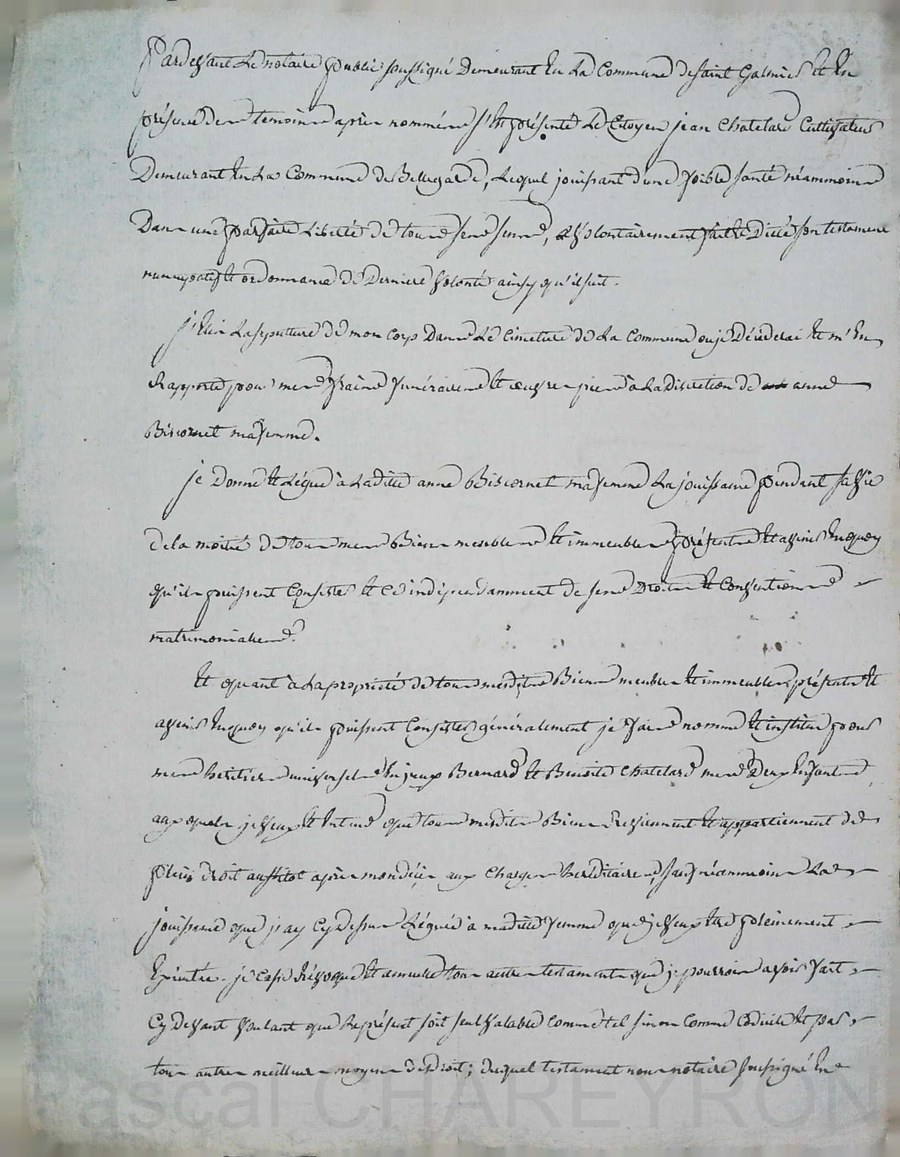 Pardevant Le notaire public soussigné Demeurant En La Commune de saint Galmier Et En
présence des temoins après nommés s'Est présenté Le Citoyen jean Chatelard Cultivateur
Demeurant En La Commune de Bellegarde, Lequel jouissant d'une foible santé néammoins
Dans une parfaite Liberté de tous ses sens, a volontairement fait Et Dicté son testament
nuncupatif Et ordonnance de Derniere volonté ainsy qu'il suit.
j'Elis La sepulture de mon corps Dans Le Cimetiere de La Commune ou je Décederai Et m'En
Rapporte pour mes frais funéraires Et œuvres pies à La discretion de anne
Biscornet ma femme.
je Donne Et Légue à Laditte anne Biscornet ma femme La jouissance pendant sa vie
de la moitié de tous mes Biens meubles Et immeubles présents Et avenir En quoy
qu'ils puissent Consister Et ce indépendamment de ses Droits Et Conventions
matrimoniales.
Et quant à La propriété de tous mesdits Biens meubles Et immeubles, présents Et
avenir En quoy qu'ils puissent Consister généralement je fais nomme Et institue pour
mes heritiers universels Bernard Et Benoite Chatelard mes Deux Enfants
aux quels je veux Et Entend que tous mesdits Biens Reviennent Et appartiennent de
plein droit aussitot après mon décès aux Charges hereditaires, sauf néanmoins La
jouissance que j'ay Cy dessus Léguée à maditte femme que je veux Etre pleinement
Exécutée. je Casse Révoque Et annulle tous autres testaments que je pourrois avoir fait
Cy Devant voulant que Le présent soit seul valable Comme tel sinon Comme Codicile Et par
tous autres meilleurs moyens de Droit; duquel testament nous notaire soussigné En
Pascal CHAREYRON